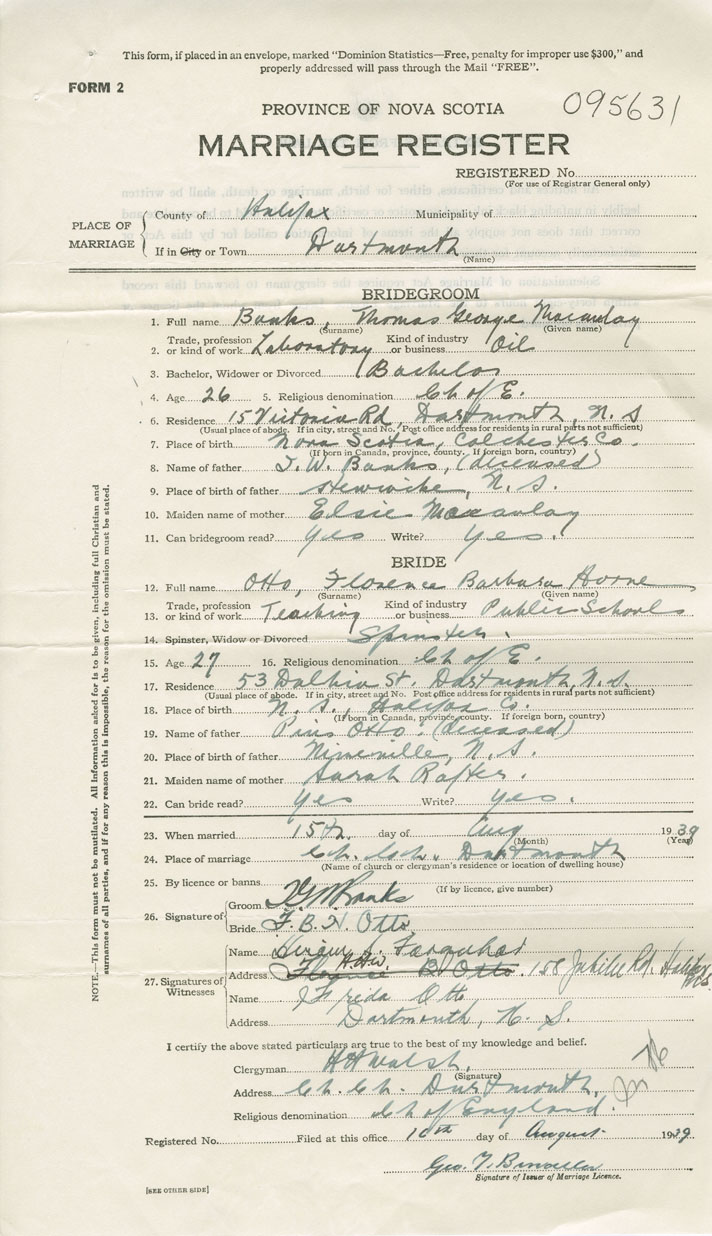 This form, if placed in an envelope, marked "Dominion Statistics—Free, penalty for improper use $300," and
properly addressed will pass through the Mail "FREE".
FORM 2
PROVINCE OF NOVA SCOTIA 095631
MARRIAGE REGISTER
REGISTERED No.
(For use of Registrar General only)
PLACE OF MARRIAGE
County of Halifax Municipality of
If in City or Town Dartmouth
(Name)
BRIDEGROOM
1. Full name Banks, Thomas George Macaulay
(Surname) (Given name)
2. Trade, profession or kind of work Laboratory Kind of industry or business Oil
3. Bachelor, Widower or Divorced Bachelor
4. Age 26 5. Religious denomination Ch of E.
6. Residence 15 Victoria Rd, Dartmouth, N. S
(Usual place of abode. If in city, street and No. Post office address for residents in rural parts not sufficient)
7. Place of birth Nova Scotia, Colchester Co.
(If born in Canada, province, county. If foreign born, country)
8. Name of father J. W. Banks, (deceased)
9. Place of birth of father Stewiacke, N. S.
10. Maiden name of mother Elsie Macaulay
11. Can bridegroom read? Yes Write? Yes.
BRIDE
12. Full name Otto, Florence Barbara Horne
(Surname) (Given name)
13. Trade, profession or kind of work Teaching Kind of industry or business Public Schools
14. Spinster, Widow or Divorced Spinster.
15. Age 27 16. Religious denomination Ch of E.
17. Residence 53 Dalhia St. Dartmouth, N. S.
(Usual place of abode. If in city, street and No. Post office address for residents in rural parts not sufficient)
18. Place of birth N. S., Halifax Co.
(If born in Canada, province, county. If foreign born, country)
19. Name of father Pius Otto. (deceased)
20. Place of birth of father Nineville, N. S.
21. Maiden name of mother Sarah Rafter.
22. Can bride read? Yes Write? Yes.
23. When married 15th day of Aug 1939
(Month) (Year)
24. Place of marriage Ch. Dartmouth
(Name of church or clergyman's residence or location of dwelling house)
25. By licence or banns
(If by licence, give number)
26. Signature of
Groom Banks
Bride F. B. H. Otto
27. Signatures of Witnesses
Name Hiram S. Farquhar
Address Florence B. Otto. 158 Jubilee Rd. Halifax
Name Freda Otto
Address Dartmouth, N. S.
I certify the above stated particulars are true to the best of my knowledge and belief.
Clergyman Walsh,
(Signature)
Address Ch. Ch. Dartmouth,
Religious denomination Ch of England.
Registered No. Filed at this office 10th day of August 1939
Geo.
Signature of Issuer of Marriage Licence.
[SEE OTHER SIDE]
NOTE.—This form must not be mutilated. All information asked for is to be given, including full Christian and
surnames of all parties, and if for any reason this is impossible, the reason for the omission must be stated.